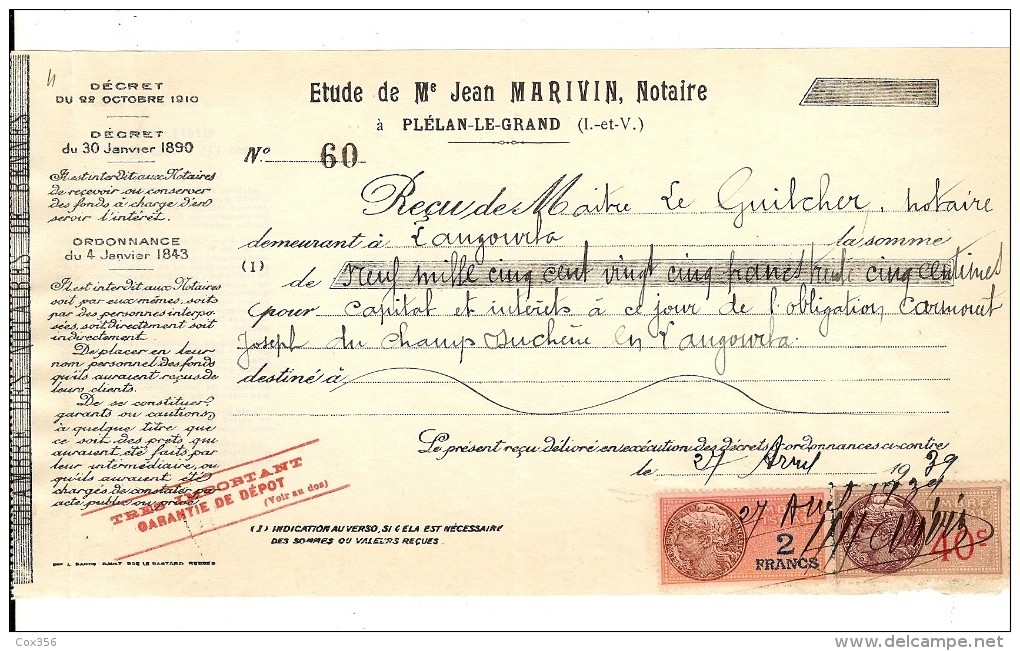 DÉCRET
DU 22 OCTOBRE 1910
DÉCRET
du 30 Janvier 1890
Il est interdit aux Notaires
de recevoir ou conserver
des fonds à charge d'en
servir l'intérêt.
ORDONNANCE
du 4 Janvier 1843
Il est interdit aux Notaires
soit par eux mêmes, soit
par des personnes interpo-
sées, soit directement soit
indirectement.
De placer en leur
nom personnel des fonds
qu'ils auraient reçus de
leurs clients.
De se constituer
garants ou cautions,
à quelque titre que
ce soit des prêts qui
auraient été faits par
leur intermédiaire, ou
qu'ils auraient été
chargés de constater par
acte public ou privé.
TRES IMPORTANT
GARANTIE DE DÉPOT
(Voir au dos)
CHAMBRE DES NOTAIRES DE RENNES
Etude de Me Jean MARIVIN, Notaire
à PLÉLAN-LE-GRAND (I.-et-V.)
No 60
Reçu de Maître Le Guilcher, notaire
demeurant à Langourla la somme
(1)
de Neuf mille cinq cent vingt cinq francs trente cinq centimes
pour capital et intérêts à ce jour de l'obligation
Joseph du Champ en Langourla.
destiné à
Le présent reçu délivré en exécution des décrets & ordonnances ci-contre
le 27 Avril 1939
27 Avril 1939
2
FRANCS
40c
(1) INDICATION AU VERSO, SI CELA EST NÉCESSAIRE
DES SOMMES OU VALEURS REÇUES.
Cox356
www.delcampe.net